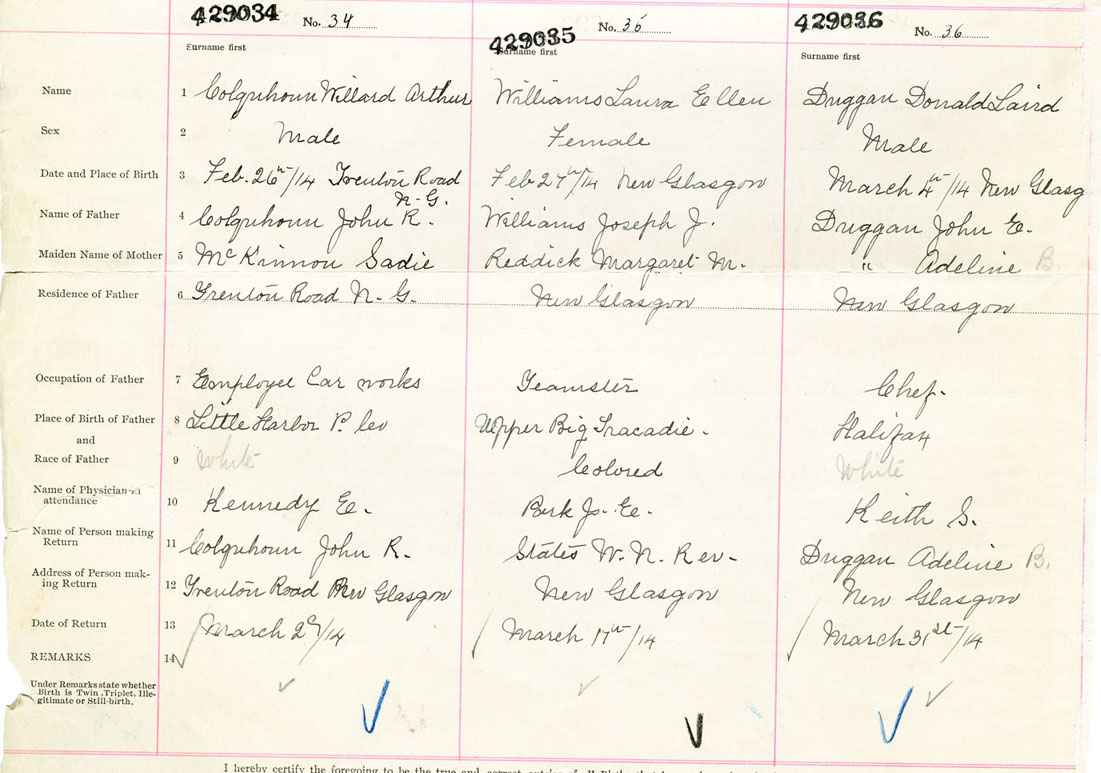 429034 No. 34 429035 No. 35 429036 No. 36
Surname first Surname first Surname first
Name 1 Colquhoun Willard Arthur Williams Laura Ellen Duggan Donald Laird
Sex 2 Male Female Male
Date and Place of Birth 3 Feb. 26th/14 Trenton Road N-G. Feb 27th/14 New Glasgow March 4th/14 New Glasg
Name of Father 4 Colquhoun John R. Williams Joseph J. Duggan John E.
Maiden Name of Mother 5 McKinnon Sadie Reddick Margaret M. " Adeline B
Residence of Father 6 Trenton Road N-G. New Glasgow New Glasgow
Occupation of Father 7 Employee Car works Teamster Chef.
Place of Birth of Father 8 Little Harbor P. Upper Big Tracadie. Halifax
and
Race of Father 9 White Colored White
Name of Physician in
attendance 10 Kennedy E. E. Keith S.
Name of Person making
Return 11 Colquhoun John R. States W. N. Rev. Duggan Adeline B.
Address of Person mak-
ing Return 12 Trenton Road New Glasgow New Glasgow New Glasgow
Date of Return 13 March /14 March 17th/14 March 31st/14
REMARKS 14
Under Remarks state whether
Birth is Twin, Triplet, Ille-
gitimate or Still-birth.
I hereby certify the foregoing to be the true and correct entries of all Births that